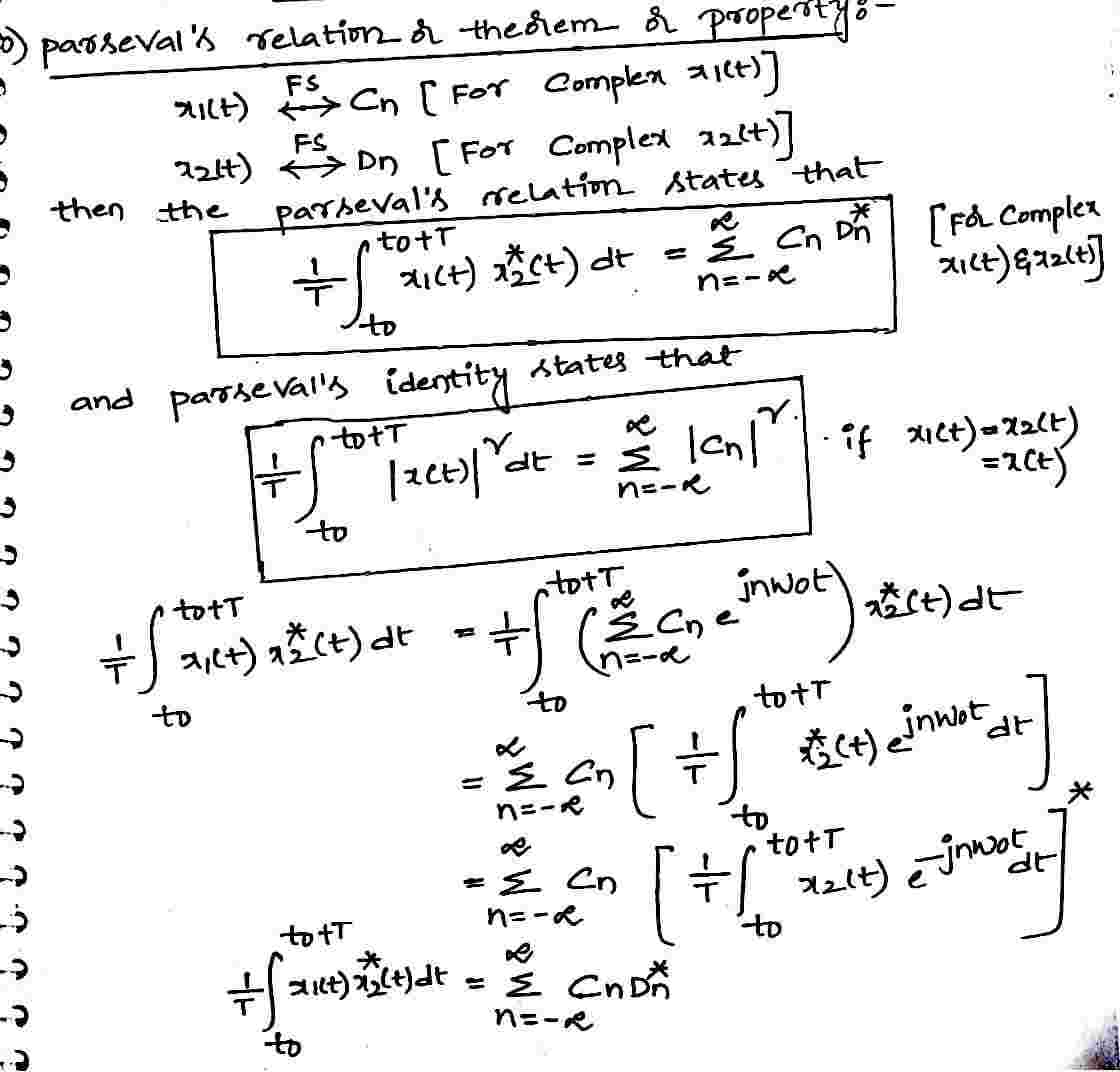 b) parseval's relation or theorem or property:-
x1(t) ⟷^{FS} Cn [For Complex x1(t)]
x2(t) ⟷^{FS} Dn [For Complex x2(t)]
then the parseval's relation states that
1/T ∫_{to}^{to+T} x1(t) x2*(t) dt = Σ_{n=-∞}^{∞} Cn Dn* [For Complex x1(t) & x2(t)]
and parseval's identity states that
1/T ∫_{to}^{to+T} |x(t)|² dt = Σ_{n=-∞}^{∞} |Cn|². if x1(t)=x2(t) =x(t)
1/T ∫_{to}^{to+T} x1(t) x2*(t) dt = 1/T ∫_{to}^{to+T} (Σ_{n=-∞}^{∞} Cn e^{jnωot}) x2*(t) dt
= Σ_{n=-∞}^{∞} Cn [1/T ∫_{to}^{to+T} x2*(t) e^{jnωot} dt]
= Σ_{n=-∞}^{∞} Cn [1/T ∫_{to}^{to+T} x2(t) e^{-jnωot} dt]*
1/T ∫_{to}^{to+T} x1(t) x2*(t) dt = Σ_{n=-∞}^{∞} Cn Dn*